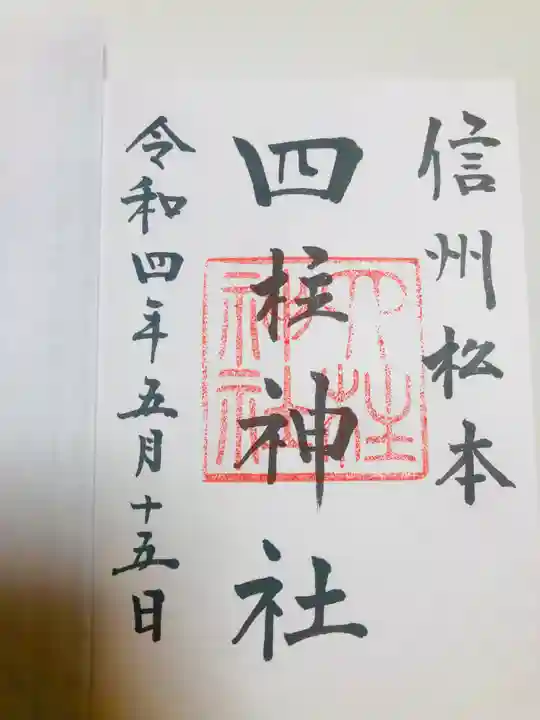 信州松本
四柱神社
四柱
神社
令和四年五月十五日